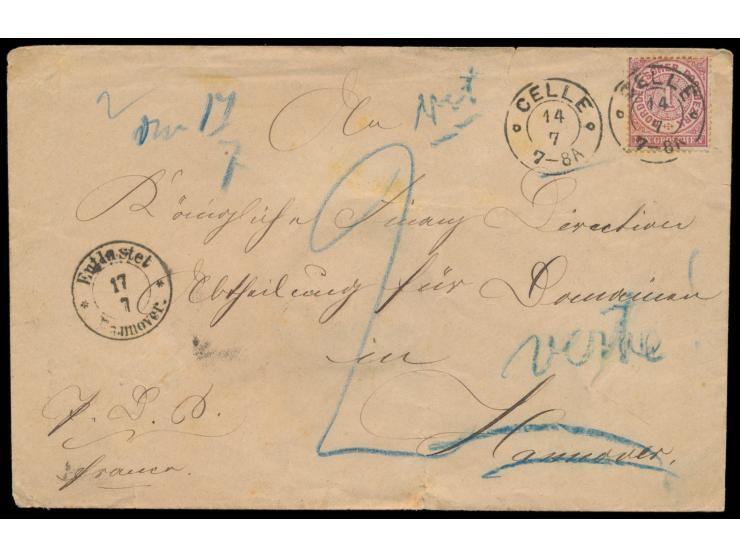 CELLE
14
7
7-8A
CELLE
14
7
7-8A
NORDD
17
7
An
Königliche Finanz Direction
Abtheilung für Domainen
in
Hannover.
2
Entlastet
17
7
Hannover.
franco.